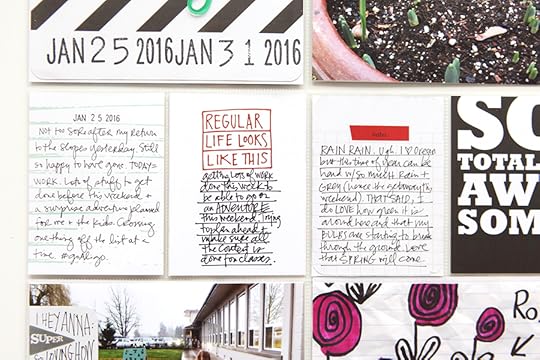 JAN 25 2016 JAN 31 2016
JAN 25 2016
NOT TOO SORE after my return
to the slopes yesterday. Still
so happy to have gone. TODAY=
WORK. Lots of stuff to get
done before this weekend +
a surprise adventure planned
for me + the kids. Crossing
one thing off the list at a
time. #gollygo.
REGULAR
LIFE LOOKS
LIKE THIS
getting lots of work
done this week to
be able to go on
an ADVENTURE
this weekend. Trying
to plan ahead +
make sure all
the content is
done for classes.
RAIN RAIN. Ugh. I ♡ Oregon
but this time of year can be
hard w/ so much RAIN +
GREY (hence the getaway this
weekend). THAT SAID, I
do LOVE how green it is
around here and that my
BULBS are starting to break
through the ground. Love
that SPRING will come.
SO
TOTAL
AW
SOM
HEY ANNA:
SUPER
SO LOVING HOW
Ro